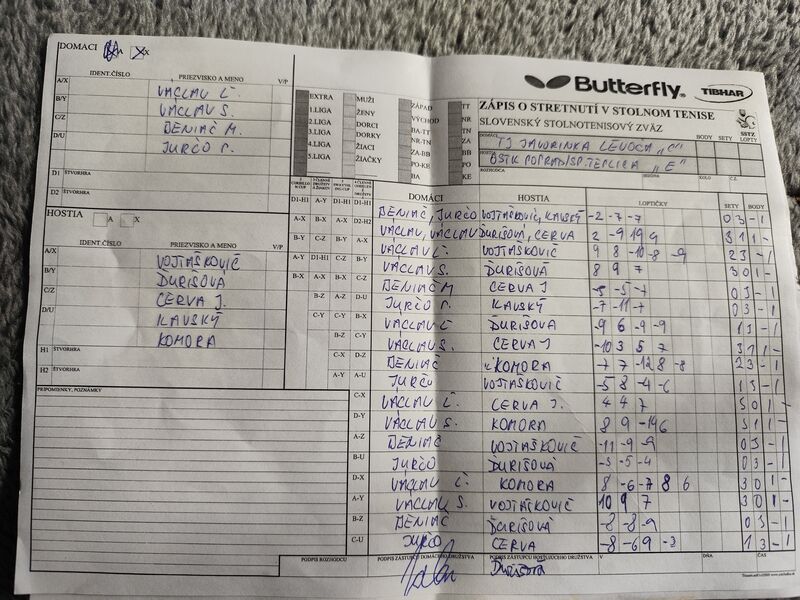 DOMACI A X
IDENT.ČÍSLO PRIEZVISKO A MENO V/P
A/X VÁCLAV Ľ.
B/Y VÁCLAV S.
C/Z BENIAČ M.
D/U JURČO P.
D1 ŠTVORHRA
D2 ŠTVORHRA
HOSTIA A X
IDENT.ČÍSLO PRIEZVISKO A MENO V/P
A/X VOJTAŠKOVIČ
B/Y ĎURIŠOVÁ
C/Z CERVA J.
D/U KLAVSKÝ
KOMORA
H1 ŠTVORHRA
H2 ŠTVORHRA
PRIPOMIENKY, POZNÁMKY
Butterfly TIBHAR
ZÁPIS O STRETNUTÍ V STOLNOM TENISE
SLOVENSKÝ STOLNOTENISOVÝ ZVÄZ
SSTZ
EXTRA MUŽI ZÁPAD TT
1.LIGA ŽENY VÝCHOD NR
2.LIGA DORCI BA-TT TN
3.LIGA DORKY TN-NR ZA
4.LIGA ŽIACI ZA-BB BB
5.LIGA ŽIAČKY PO-KE PO
BA KE
DOMÁCI TJ JAVORINKA LEVOČA "C" BODY SETY LOPTY
HOSTIA ŠSTK POPRAD/SP.TEPLICA "E"
ROZHODCA SEZÓNA KOLO Č.Z.
DOMÁCI HOSTIA LOPTIČKY SETY BODY
D1-H1 A-Y D1-H1 D1-H1 BENIAČ, JURČO VOJTAŠKOVIČ, KLAVSKÝ -2 -7 -7 03 -1
A-X B-X A-X D2-H2 VÁCLAV, VÁCLAV ĎURIŠOVÁ, CERVA 2 -9 19 9 31 1-
B-Y C-Z B-Y A-X VÁCLAV Ľ. VOJTAŠKOVIČ 9 8 -10 -8 -9 23 -1
A-Y D1-H1 C-Z B-Y VÁCLAV S. ĎURIŠOVÁ 8 9 7 30 1-
B-X A-X B-X C-Z BENIAČ M CERVA J -5 -5 -7 03 -1
B-Z A-Z D-U JURČO P. KLAVSKÝ -7 -11 -7 03 -1
C-Y C-Y B-X VÁCLAV Ľ ĎURIŠOVÁ -9 6 -9 -9 13 -1
B-Z C-Y VÁCLAV S. CERVA J -10 3 5 7 31 1-
C-X D-Z BENIAČ KOMORA -7 7 -12 8 -8 23 -1
A-Y A-U JURČO VOJTAŠKOVIČ -5 8 -4 -6 13 -1
C-X VÁCLAV Ľ. CERVA J. 4 4 7 30 1-
D-Y VÁCLAV S. KOMORA 8 9 -14 6 31 1-
A-Z BENIAČ VOJTAŠKOVIČ -11 -9 -9 03 -1
B-U JURČO ĎURIŠOVÁ -3 -5 -4 03 -1
D-X VÁCLAV Ľ. KOMORA 8 -6 -7 8 6 30 1-
A-Y VÁCLAV S. VOJTAŠKOVIČ 10 9 7 30 1-
B-Z BENIAČ ĎURIŠOVÁ -8 -8 -9 03 -1
C-U JURČO CERVA -8 -6 9 -3 13 -1
PODPIS ROZHODCU PODPIS ZÁSTUPCU DOMÁCEHO DRUŽSTVA PODPIS ZÁSTUPCU HOSŤUJÚCEHO DRUŽSTVA V DŇA ČAS
Ďurišová